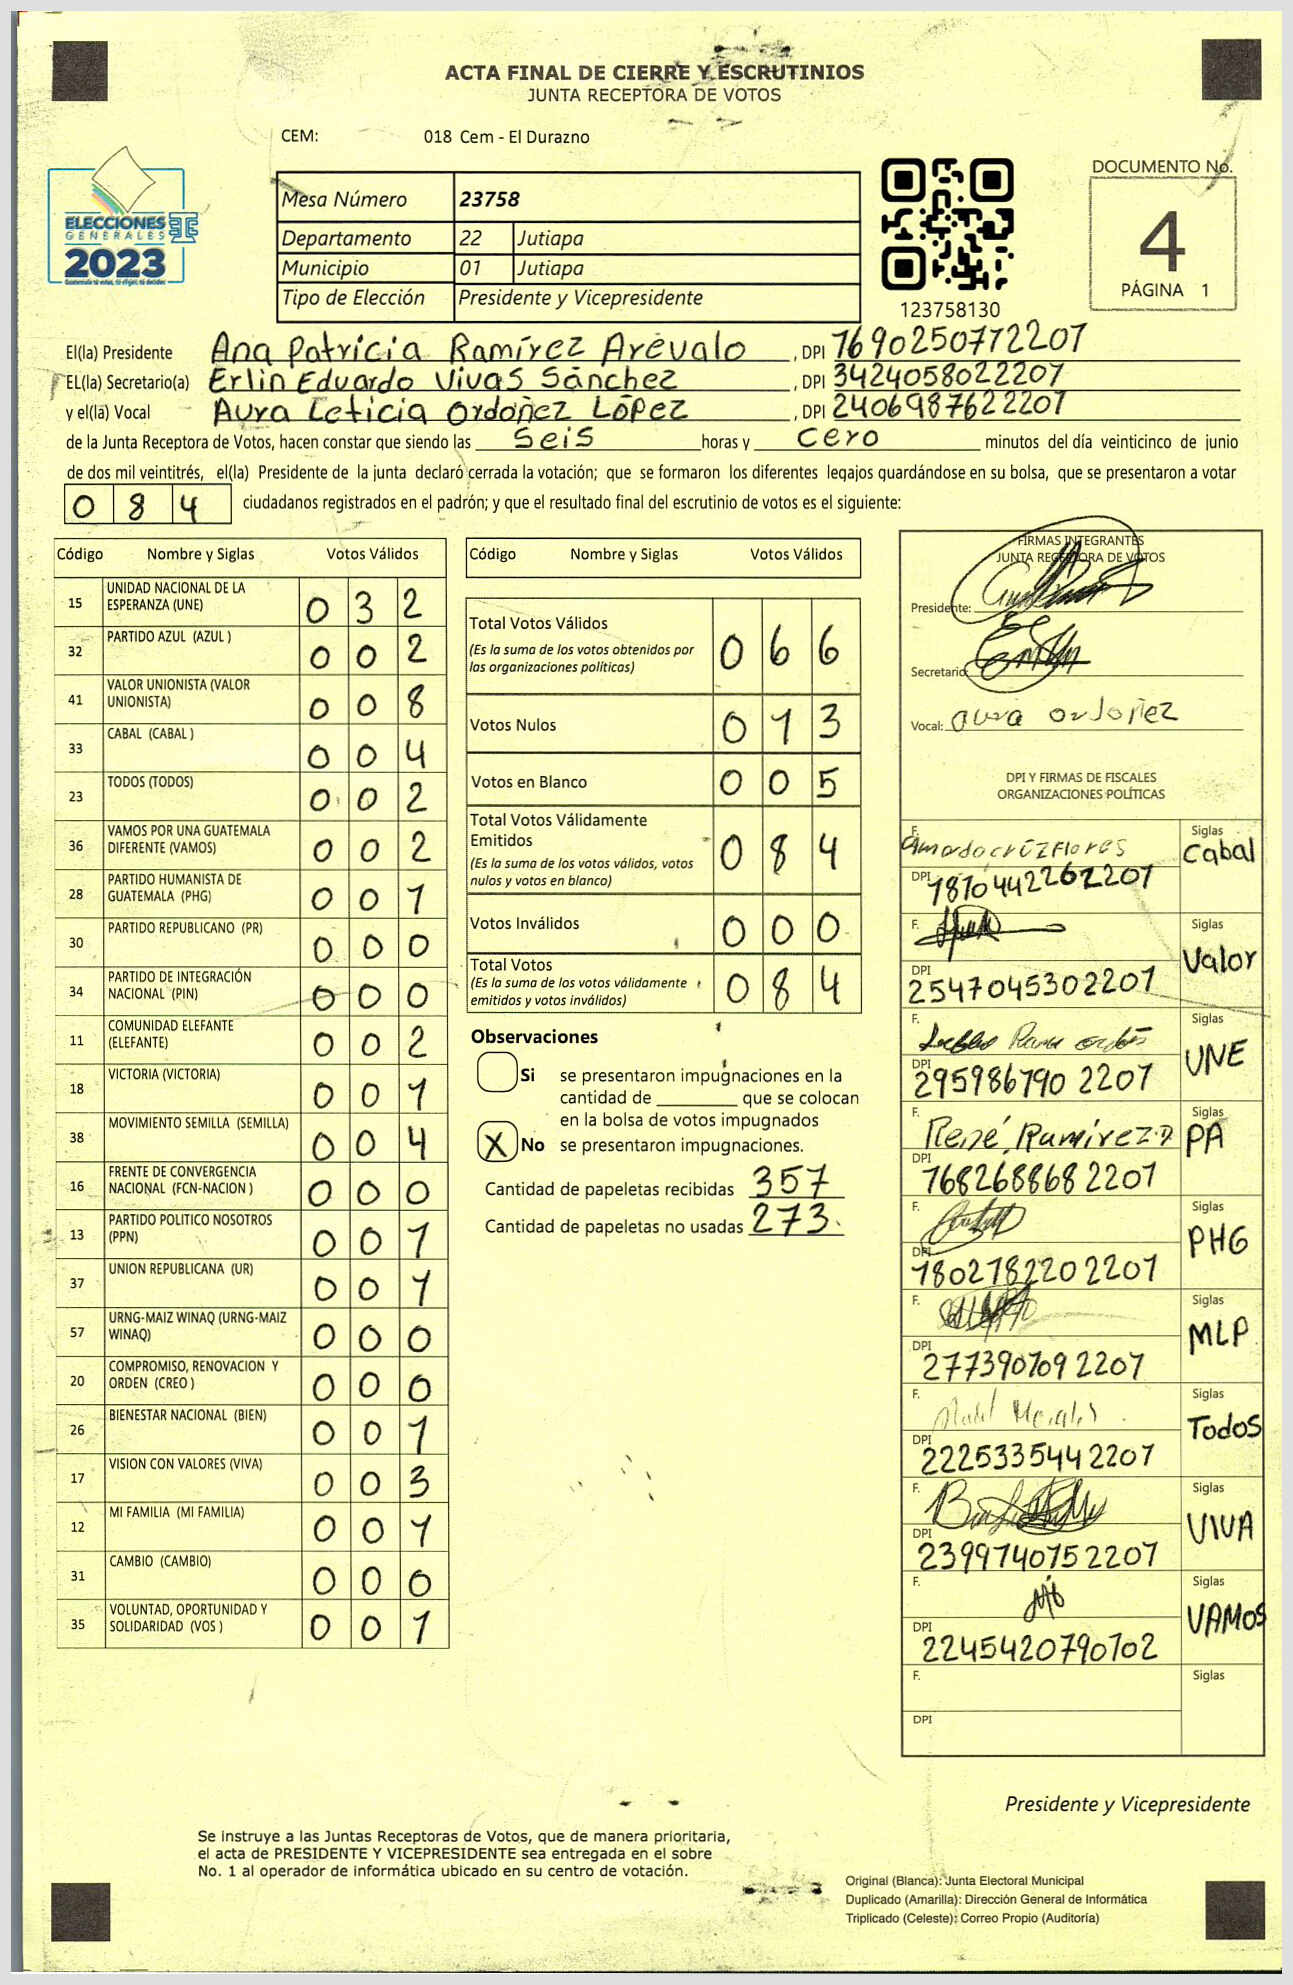 ACTA FINAL DE CIERRE Y ESCRUTINIOS
JUNTA RECEPTORA DE VOTOS
CEM: 018 Cem - El Durazno
ELECCIONES
GENERALES
2023
Mesa Número 23758
Departamento 22 Jutiapa
Municipio 01 Jutiapa
Tipo de Elección Presidente y Vicepresidente
123758130
DOCUMENTO No.
4
PÁGINA 1
El(la) Presidente Ana Patricia Ramírez Arévalo, DPI 1690250772207
EL(la) Secretario(a) Erlin Eduardo Vivas Sánchez, DPI 3424058022207
y el(la) Vocal Aura Leticia Ordoñez López, DPI 2406987622207
de la Junta Receptora de Votos, hacen constar que siendo las seis horas y cero minutos del día veinticinco de junio
de dos mil veintitrés, el(la) Presidente de la junta declaró cerrada la votación; que se formaron los diferentes legajos guardándose en su bolsa, que se presentaron a votar
084 ciudadanos registrados en el padrón; y que el resultado final del escrutinio de votos es el siguiente:
Código Nombre y Siglas Votos Válidos
15 UNIDAD NACIONAL DE LA ESPERANZA (UNE) 032
32 PARTIDO AZUL (AZUL ) 002
41 VALOR UNIONISTA (VALOR UNIONISTA) 008
33 CABAL (CABAL ) 004
23 TODOS (TODOS) 002
36 VAMOS POR UNA GUATEMALA DIFERENTE (VAMOS) 002
28 PARTIDO HUMANISTA DE GUATEMALA (PHG) 001
30 PARTIDO REPUBLICANO (PR) 000
34 PARTIDO DE INTEGRACIÓN NACIONAL (PIN) 000
11 COMUNIDAD ELEFANTE (ELEFANTE) 002
18 VICTORIA (VICTORIA) 001
38 MOVIMIENTO SEMILLA (SEMILLA) 004
16 FRENTE DE CONVERGENCIA NACIONAL (FCN-NACION ) 000
13 PARTIDO POLITICO NOSOTROS (PPN) 001
37 UNION REPUBLICANA (UR) 001
57 URNG-MAIZ WINAQ (URNG-MAIZ WINAQ) 000
20 COMPROMISO, RENOVACION Y ORDEN (CREO ) 000
26 BIENESTAR NACIONAL (BIEN) 001
17 VISION CON VALORES (VIVA) 003
12 MI FAMILIA (MI FAMILIA) 001
31 CAMBIO (CAMBIO) 000
35 VOLUNTAD, OPORTUNIDAD Y SOLIDARIDAD (VOS ) 001
Código Nombre y Siglas Votos Válidos
Total Votos Válidos 066
(Es la suma de los votos obtenidos por
las organizaciones políticas)
Votos Nulos 013
Votos en Blanco 005
Total Votos Válidamente
Emitidos 084
(Es la suma de los votos válidos, votos
nulos y votos en blanco)
Votos Inválidos 000
Total Votos 084
(Es la suma de los votos válidamente
emitidos y votos inválidos)
Observaciones
Si se presentaron impugnaciones en la
cantidad de ________ que se colocan
en la bolsa de votos impugnados
X No se presentaron impugnaciones.
Cantidad de papeletas recibidas 357
Cantidad de papeletas no usadas 273
FIRMAS INTEGRANTES
JUNTA RECEPTORA DE VOTOS
Presidente:
Secretario:
Vocal: aura ordoñez
DPI Y FIRMAS DE FISCALES
ORGANIZACIONES POLÍTICAS
F. Siglas Cabal
DPI 1870442262207
F. Siglas Valor
DPI 2547045302207
F. Siglas UNE
DPI 295986790 2207
F. René Ramírez Siglas PA
DPI 768268868 2207
F. Siglas PHG
DPI 1802782202207
F. Siglas MLP
DPI 277390709 2207
F. Morales Siglas Todos
DPI 222533544 2207
F. Siglas VIVA
DPI 2399740752207
F. Siglas VAMOS
DPI 2245420790702
F. Siglas
DPI
Presidente y Vicepresidente
Se instruye a las Juntas Receptoras de Votos, que de manera prioritaria,
el acta de PRESIDENTE Y VICEPRESIDENTE sea entregada en el sobre
No. 1 al operador de informática ubicado en su centro de votación.
Original (Blanca): Junta Electoral Municipal
Duplicado (Amarilla): Dirección General de Informática
Triplicado (Celeste): Correo Propio (Auditoría)